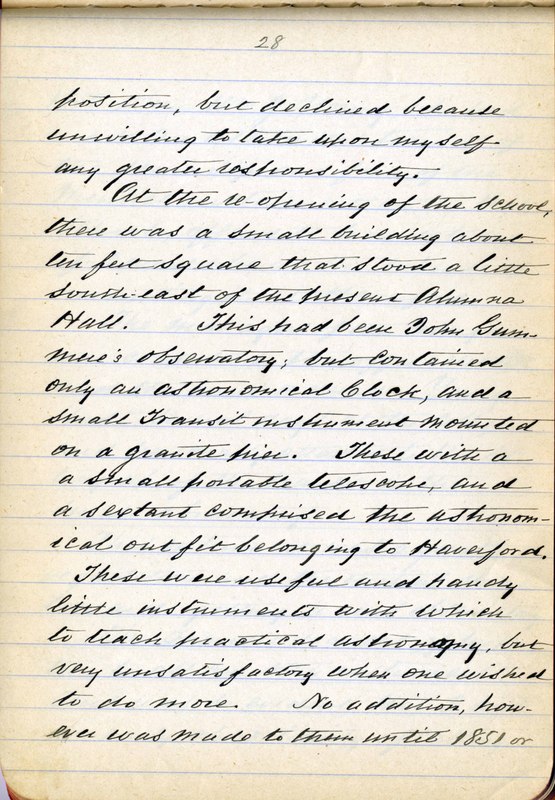 28
position, but declined because
unwilling to take upon myself
any greater responsibility.
At the re-opening of the school,
there was a small building about
ten feet square that stood a little
south-east of the present Alumna
Hall. This had been John Gum-
mere's observatory; but contained
only an astronomical Clock, and a
small Transit instrument mounted
on a granite pier. These with a
a small portable telescope, and
a sextant comprised the astronom-
ical outfit belonging to Haverford.
These were useful and handy
little instruments with which
to teach practical astronomy, but
very unsatisfactory when one wished
to do more. No addition, how-
ever was made to them until 1851 or